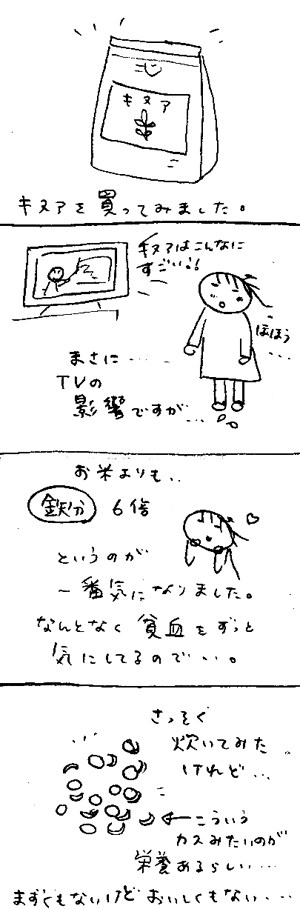 キヌア
キヌアを買ってみました。
キヌアはこんなに
すごい!!
ほほう
・・・
まさに・・・・
TVの
影響ですが・・・
お米よりも・・
鉄分 6倍
というのが
一番気になりました。
なんとなく貧血をずっと
気にしてるので・・・。
さっそく
炊いてみた
けれど・・・
←こういう
カスみたいのが
栄養あるらしい・・・
まずくもないけどおいしくもない・・・・